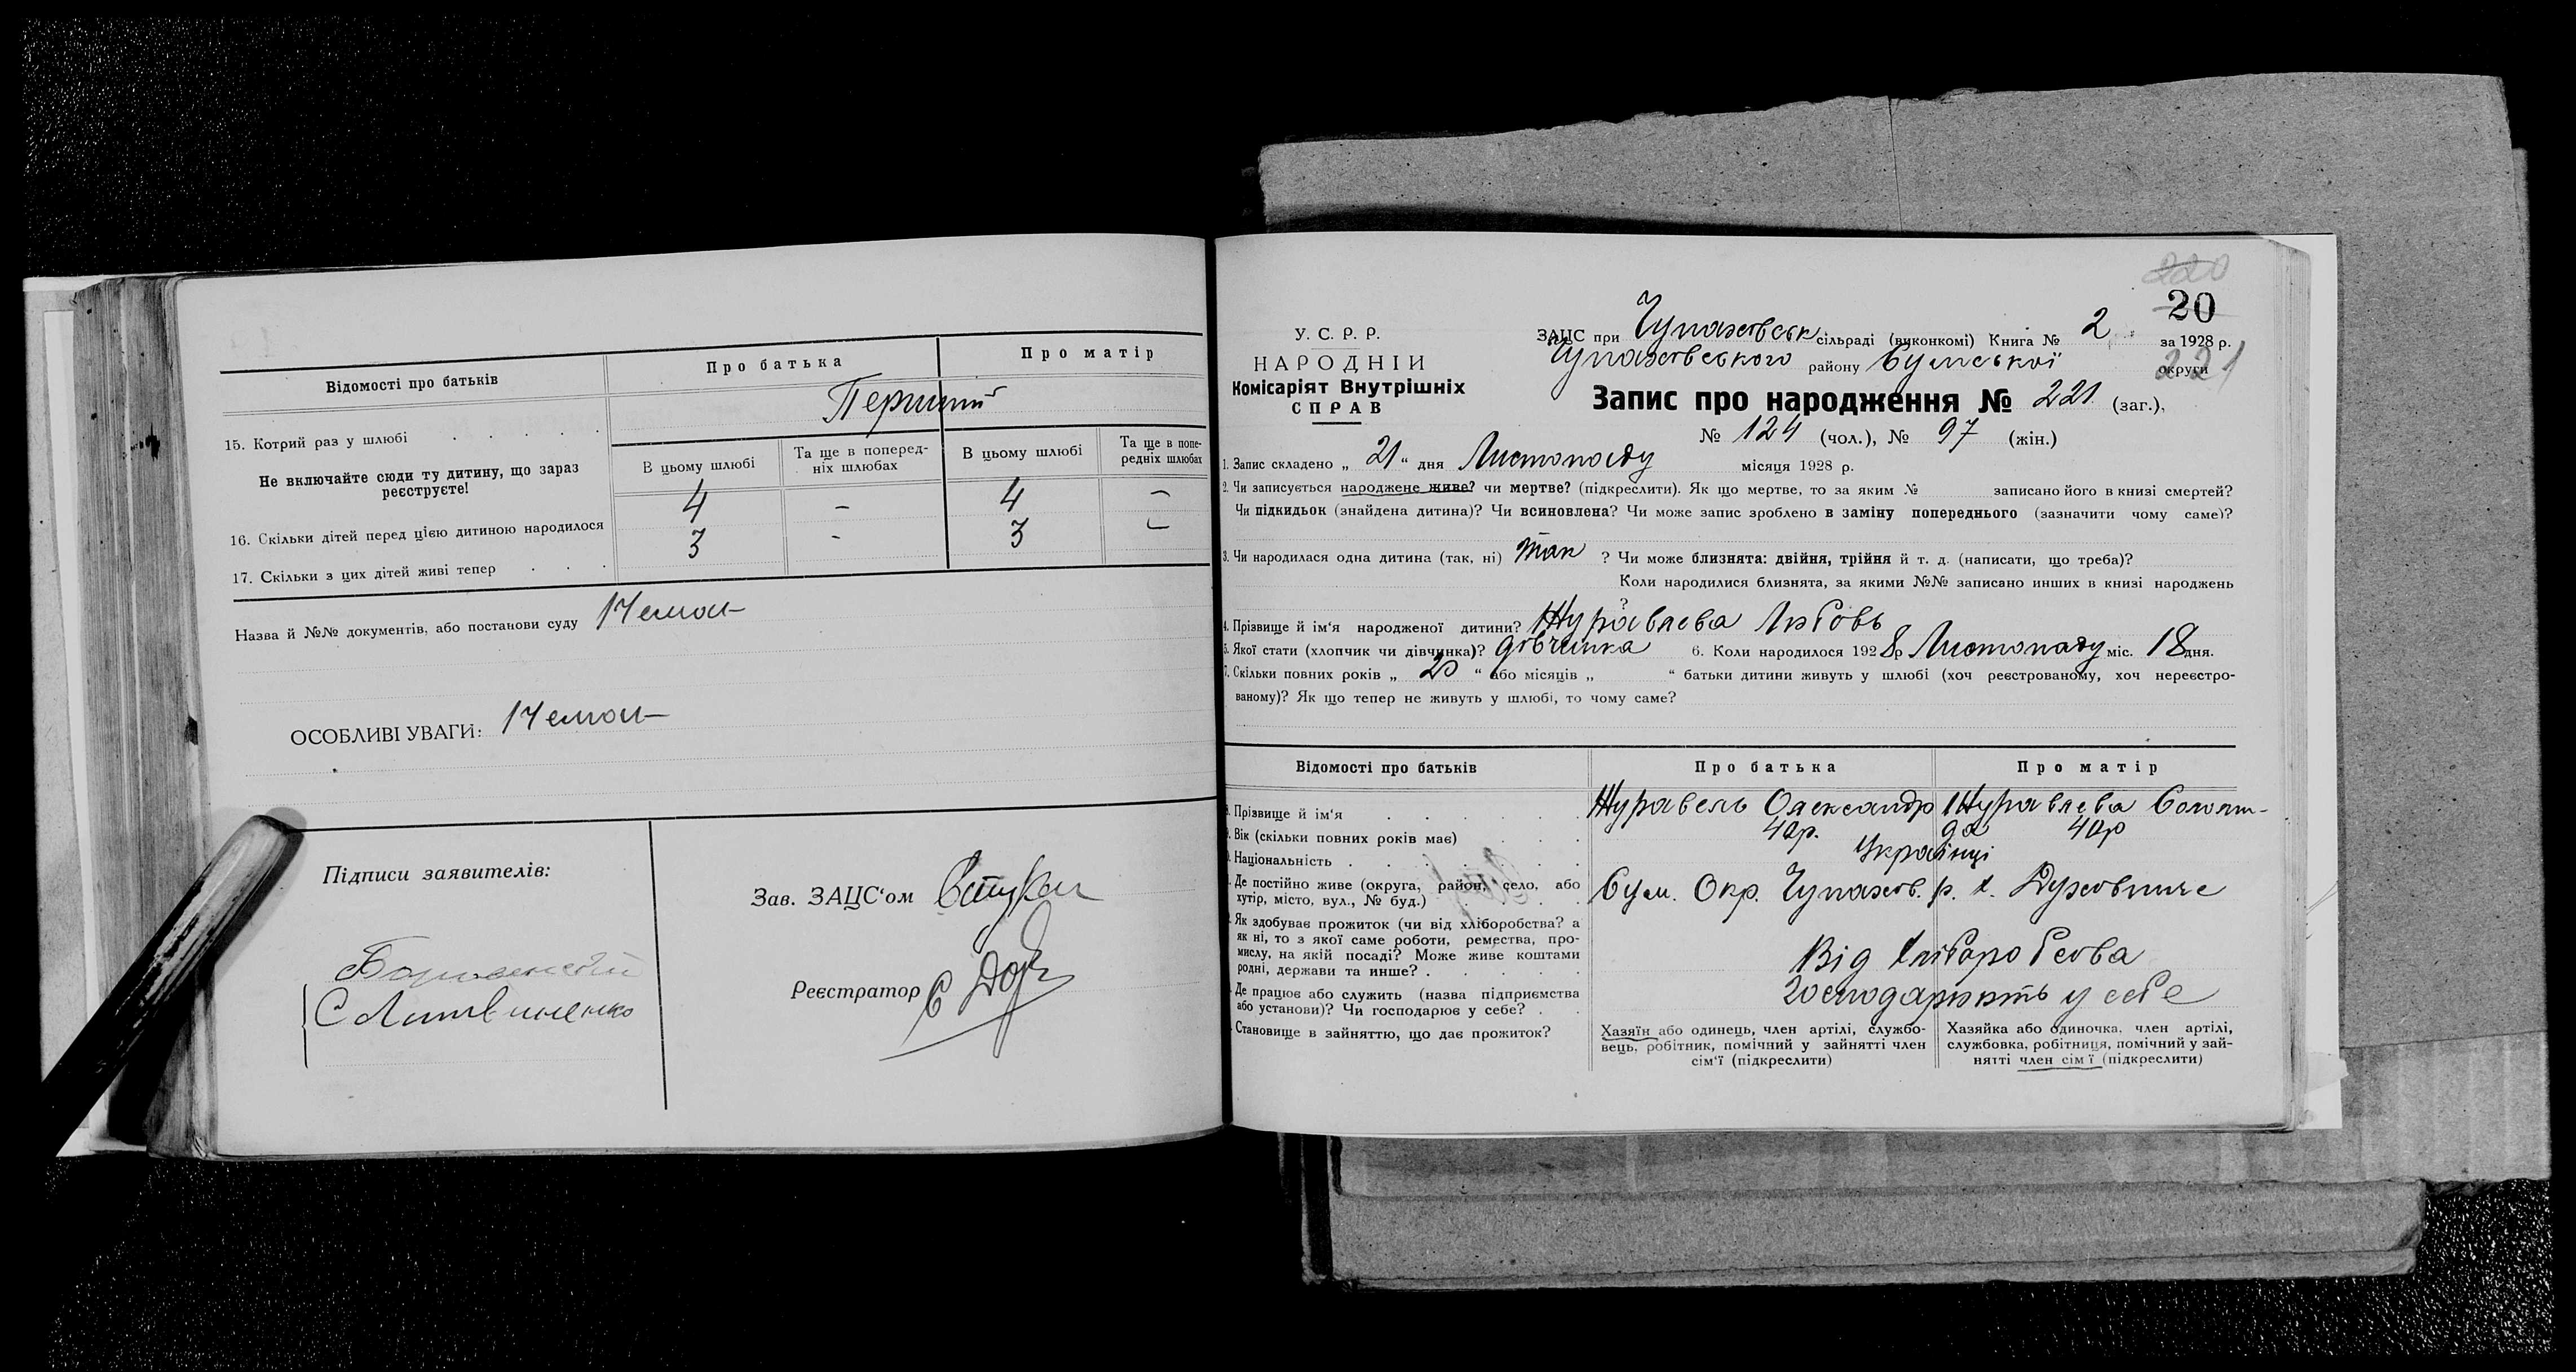 Відомості про батьків
Про батька
Про матір
15. Котрий раз у шлюбі
Перший
Не включайте сюди ту дитину, що зараз реєструєте!
В цьому шлюбі
Та ще в поперед-
ніх шлюбах
В цьому шлюбі
Та ще в попе-
редніх шлюбах
16. Скільки дітей перед цією дитиною народилося 4 – 4 –
17. Скільки з цих дітей живі тепер 3 - 3 –
Назва й №№ документів, або постанови суду
ОСОБЛИВІ УВАГИ:
Підписи заявителів:
С Литвиненко
Зав. ЗАЦС'ом
Реєстратор
220
20
У. С. Р. Р.
НАРОДНІЙ
Комісаріят Внутрішніх
СПРАВ
ЗАЦС при Чупахівськ сільраді (виконкомі) Книга № 2 за 1928 р.
Чупахівського району Сумської округи
221
Запис про народження № 221 (заг.),
№ 124 (чол.), № 97 (жін.)
1. Запис складено „ 21 “ дня Листопаду місяця 1928 р.
2. Чи записується народжене живе? чи мертве? (підкреслити). Як що мертве, то за яким № записано його в книзі смертей?
Чи підкидьок (знайдена дитина)? Чи всиновлена? Чи може запис зроблено в заміну попереднього (зазначити чому саме)?
3. Чи народилася одна дитина (так, ні) так ? Чи може близнята: двійня, трійня й т. д. (написати, що треба)?
Коли народилися близнята, за якими №№ записано инших в книзі народжень
?
4. Прізвище й ім'я народженої дитини? Журавлева Любовь
5. Якої стати (хлопчик чи дівчинка)? дівчинка 6. Коли народилося 1928 р Листопаду міс. 18 дня.
7. Скільки повних років „ 20 “ або місяців „ “ батьки дитини живуть у шлюбі (хоч реєстрованому, хоч нереєстро-
ваному)? Як що тепер не живуть у шлюбі, то чому саме?
Відомості про батьків
Про батька
Про матір
8. Прізвище й ім'я Журавель Олександр Журавлева
9. Вік (скільки повних років має) 40р. 40р
Національність Українці
Де постійно живе (округа, район, село, або
хутір, місто, вул., № буд.)
Сум. Окр. Чупахов. р. х. Духовниче
Як здобуває прожиток (чи від хліборобства? а
як ні, то з якої саме роботи, ремества, про-
мислу, на якій посаді? Може живе коштами
родні, держави та инше?
Від хліборобсва
Де працює або служить (назва підприємства
або установи)? Чи господарює у себе?
господарюють у себе
Становище в зайняттю, що дає прожиток?
Хазяїн або одинець, член артілі, службо-
вець, робітник, помічний у зайнятті член
сім'ї (підкреслити)
Хазяйка або одиночка, член артілі,
службовка, робітниця, помічний у зай-
нятті член сім'ї (підкреслити)